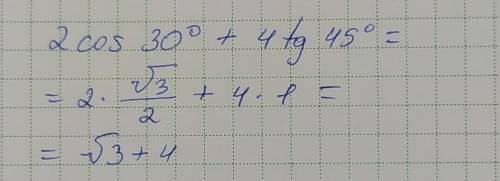 2 cos 30° + 4 tg 45° =
= 2 · √3/2 + 4 · 1 =
= √3 + 4